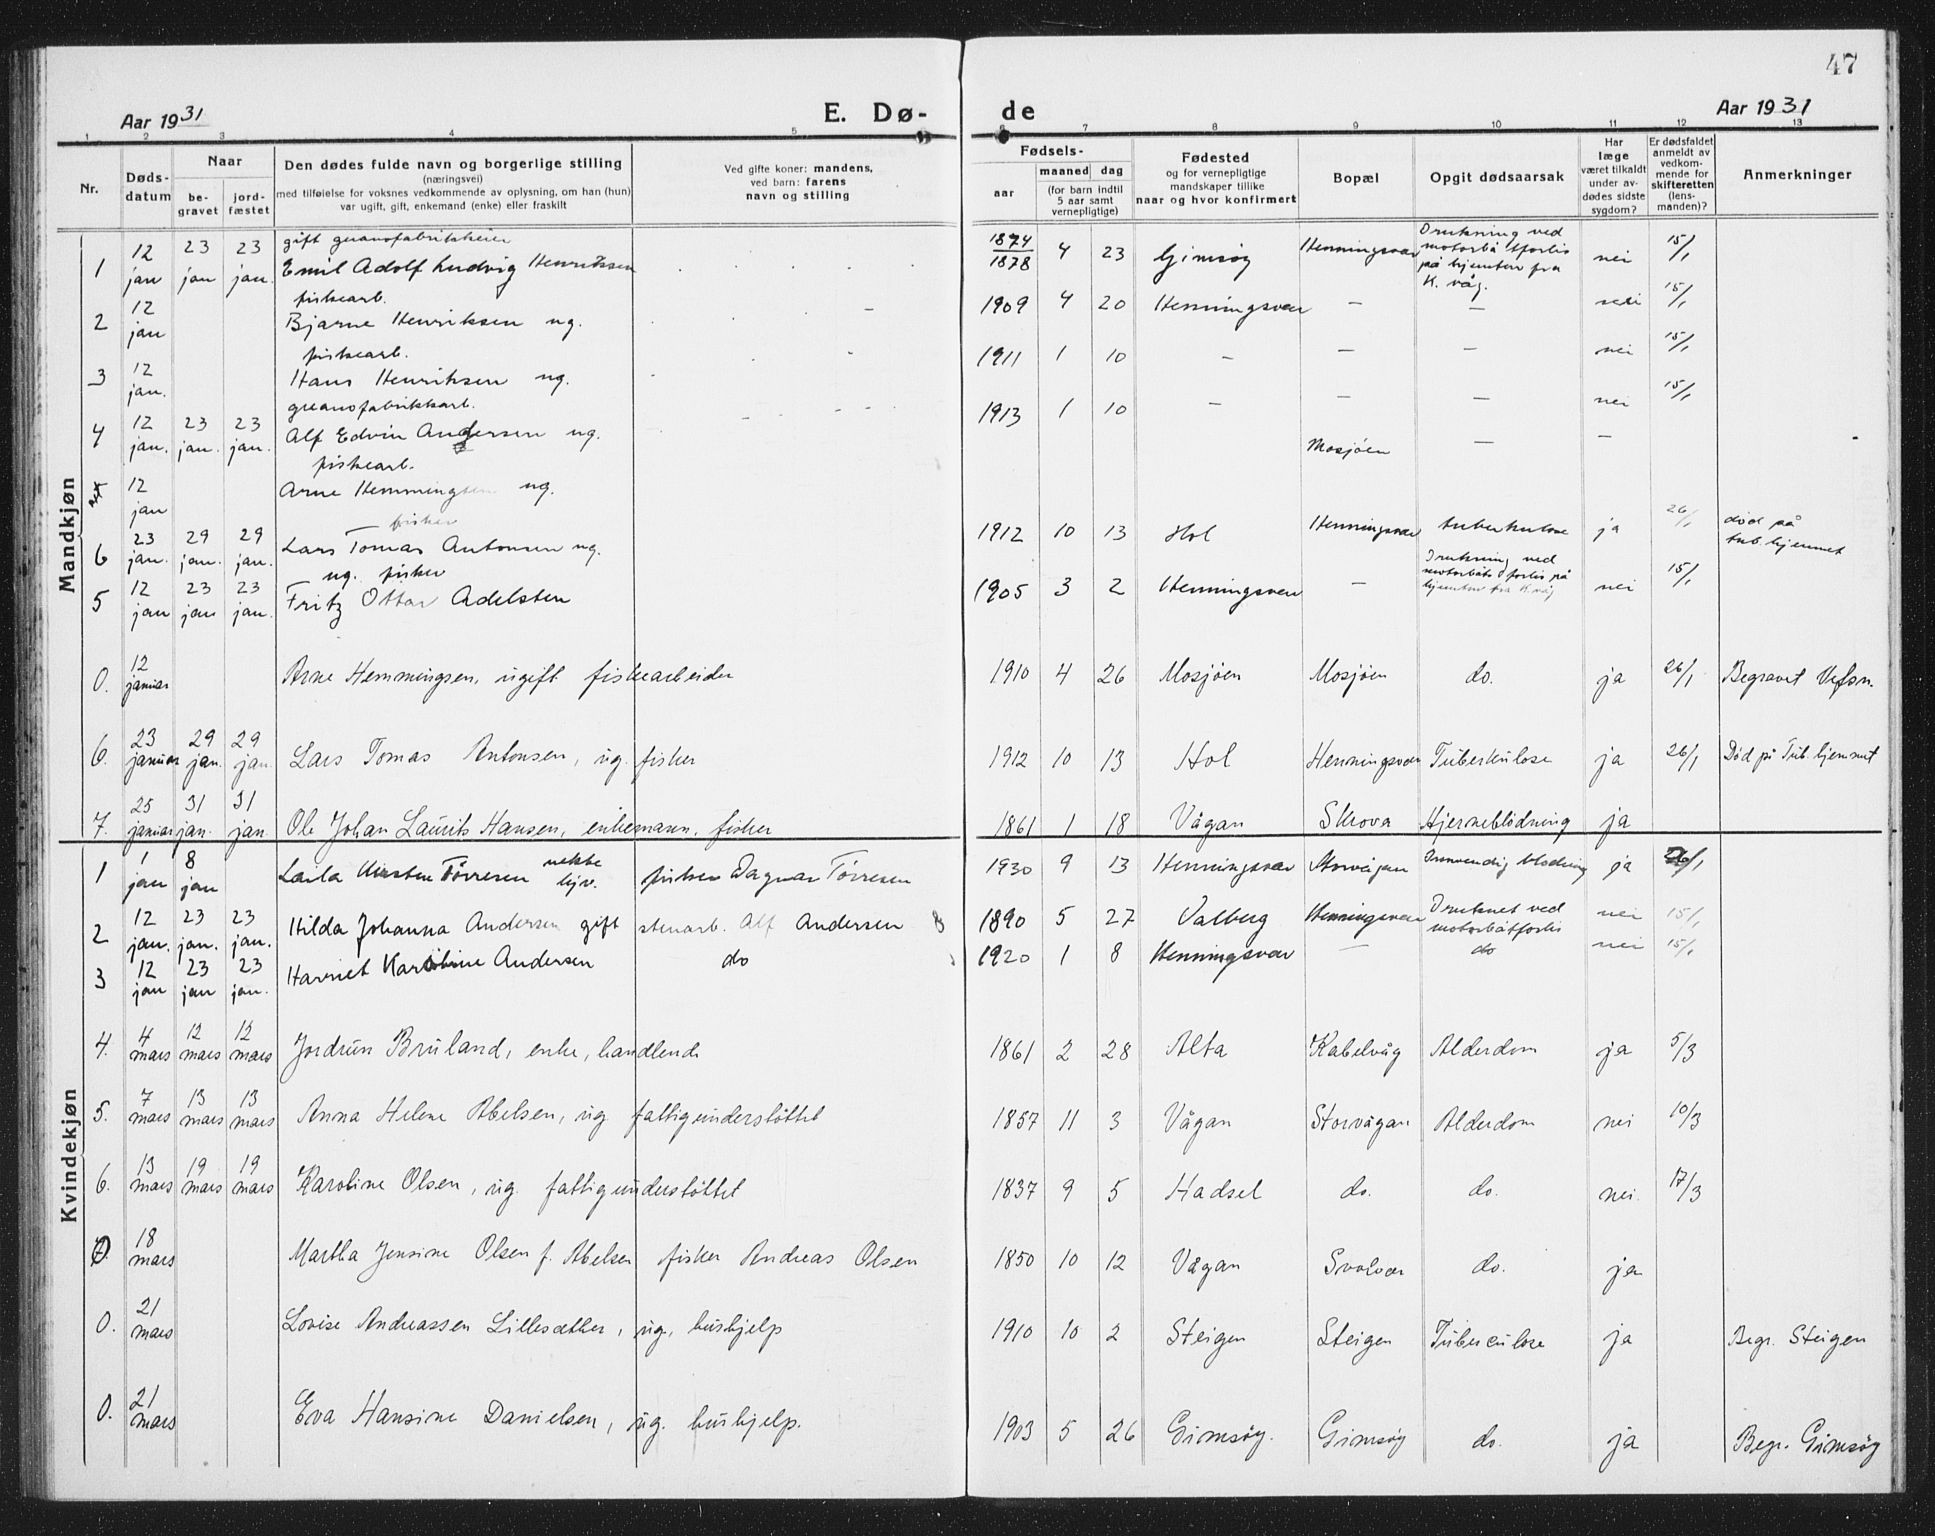 47
Aar 1931 E. Dø- de Aar 1931
1 2 3 4 5 6 7 8 9 10 11 12 13
Nr. Dødsdatum Naar begravet jordfæstet
Den dødes fulde navn og borgerlige stilling
(næringsvei)
med tilføielse for voksnes vedkommende av oplysning, om han (hun)
var ugift, gift, enkemand (enke) eller fraskilt
Ved gifte koner: mandens,
ved barn: farens
navn og stilling
Fødsels-
aar maaned dag
(for barn indtil
5 aar samt
vernepligtige)
Fødested
og for vernepligtige
mandskaper tillike
naar og hvor konfirmert
Bopæl
Opgit dødsaarsak
Har
læge
været tilkaldt
under av-
dødes sidste
sygdom?
Er dødsfaldet
anmeldt av
vedkom-
mende for
skifteretten
(lens-
manden)?
Anmerkninger
Mandkjøn
1 12 jan 23 jan 23 jan. gift guanofabrikkeier Emil Adolf Ludvig Henriksen 1874 1878 4 23 Gimsøy Henningsvær Drukning ved motorbåtforlis på hjemtur fra K. våg. nei 15/1
2 12 jan fiskearb. Bjarne Henriksen ug. 1909 4 20 Henningsvær — — nei 15/1
3 12 jan. fiskearb. Hans Henriksen ug. 1911 1 10 — — — nei 15/1
4 12 jan. 23 jan. 23 jan. guanofabrikkarb. Alf Edvin Andersen ug. 1913 1 10 — — — nei 15/1
12 jan fiskearb. Arne Hemmingsen ug. Mosjöen — —
6 23 jan. 29 jan. 29 jan. fisker Lars Tomas Antonsen ug. 1912 10 13 Hol Henningsvær tuberkulose ja 26/1 död på tub. hjemmet
5 12 jan 23 jan 23 jan. ug. fisker Fritz Ottar Adelsten 1905 3 2 Henningsvær — Drukning ved motorbåtsforlis på hjemtur fra K. våg nei 15/1
0. 12 januar Arne Hemmingsen, ugift fiskearbeider 1910 4 26 Mosjöen Mosjöen do. ja 26/1 Begravet Vefsn.
6. 23 januar 29 jan. 29 jan. Lars Tomas Antonsen, ug. fisker 1912 10 13 Hol Henningsvær Tuberkulose ja 26/1 Död på Tub. hjemmet
7. 25 januar 31 jan. 31 jan. Ole Johan Laurits Hansen, enkemann, fisker 1861 1 18 Vågan Skrova Hjerneblödning ja
Kvindekjøn
1 1 jan 8 jan Laila Kirsten Tørresen hjv. fisker Dagnar Tørresen 1930 9 13 Henningsvær Storvågan Innvendig blødning ja 26/1
2 12 jan. 23 jan. 23 jan. Hilda Johanna Andersen gift stenarb. Alf Andersen 1890 5 27 Valberg Henningsvær Druknet ved motorbåtforlis nei 15/1
3 12 jan 23 jan 23 jan. Harriet Karoline Andersen do 1920 1 8 Henningsvær — do nei 15/1
4. 4 mars 12 mars 12 mars Jordrun Bruland, enke, handlende 1861 2 28 Alta Kabelvåg Alderdom ja 5/3
5. 7 mars 13 mars 13 mars Anna Helene Abelsen, ug fattigunderstøttet 1857 11 3 Vågan Storvågan Alderdom nei 10/3
6. 13 mars 19 mars 19 mars Karoline Olsen, ug. fattigunderstøttet 1837 9 5 Hadsel do. do. nei. 17/3
0. 18 mars Martha Jensine Olsen f. Abelsen fisker Andreas Olsen 1850 10 12 Vågan Svolvær do. ja
0. 21 mars Lovise Andreassen Lillesæther, ug. hushjelp 1910 10 2 Steigen Steigen Tuberculose ja Begr. Steigen
0. 21 mars Eva Hansine Danielsen, ug. hushjelp. 1903 5 26 Gimsøy. Gimsøy do. ja Begr. Gimsøy